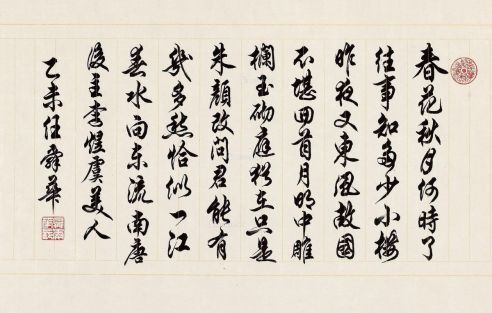 春花秋月何時了
往事知多少小樓
昨夜又東風故國
不堪回首月明中雕
欄玉砌應猶在只是
朱顏改問君能有
幾多愁恰似一江
春水向東流南唐
後主李煜虞美人
乙未任舜華